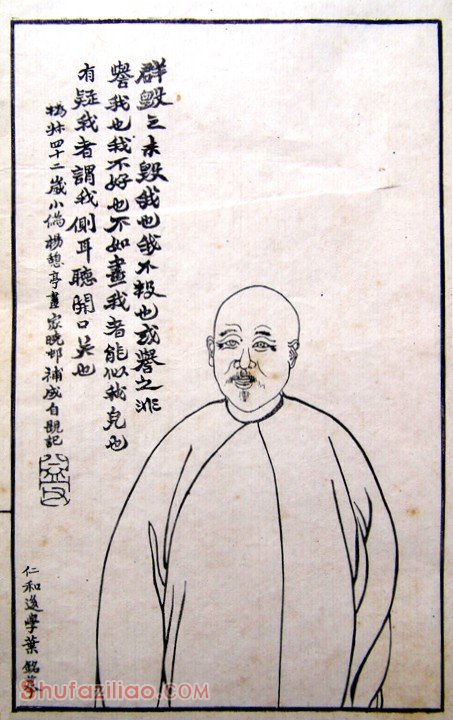 群毀之未毀我也我不報也或譽之非
譽我也我不好也不如畫我者能似我皃也
有疑我者謂我側耳聽開口笑也
撝叔四十二歲小像楊憩亭畫家曉邨補成自觀記
仁和後學葉銘摹
Shufaziliao.COM